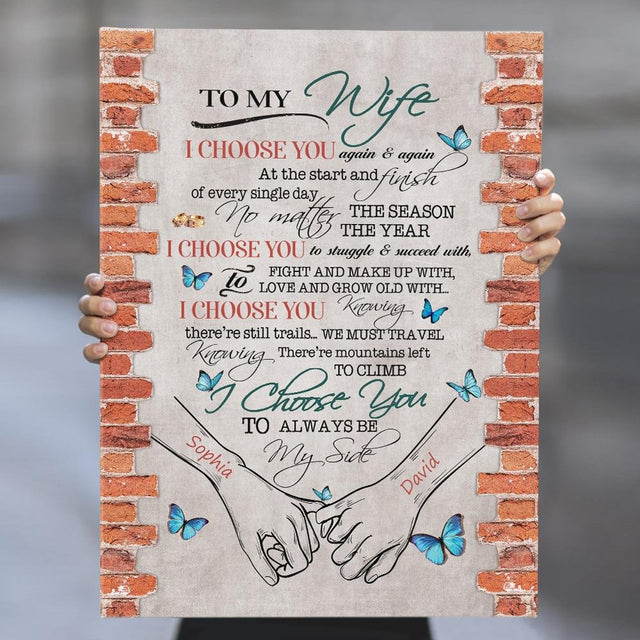 TO MY Wife
I CHOOSE YOU again & again
At the start and finish
of every single day
No matter THE SEASON
THE YEAR
I CHOOSE YOU to struggle & succeed with,
TO FIGHT AND MAKE UP WITH,
LOVE AND GROW OLD WITH...
I CHOOSE YOU Knowing
there're still trails... WE MUST TRAVEL
Knowing There're mountains left
TO CLIMB
I Choose You
TO ALWAYS BE
My Side
Sophia
David